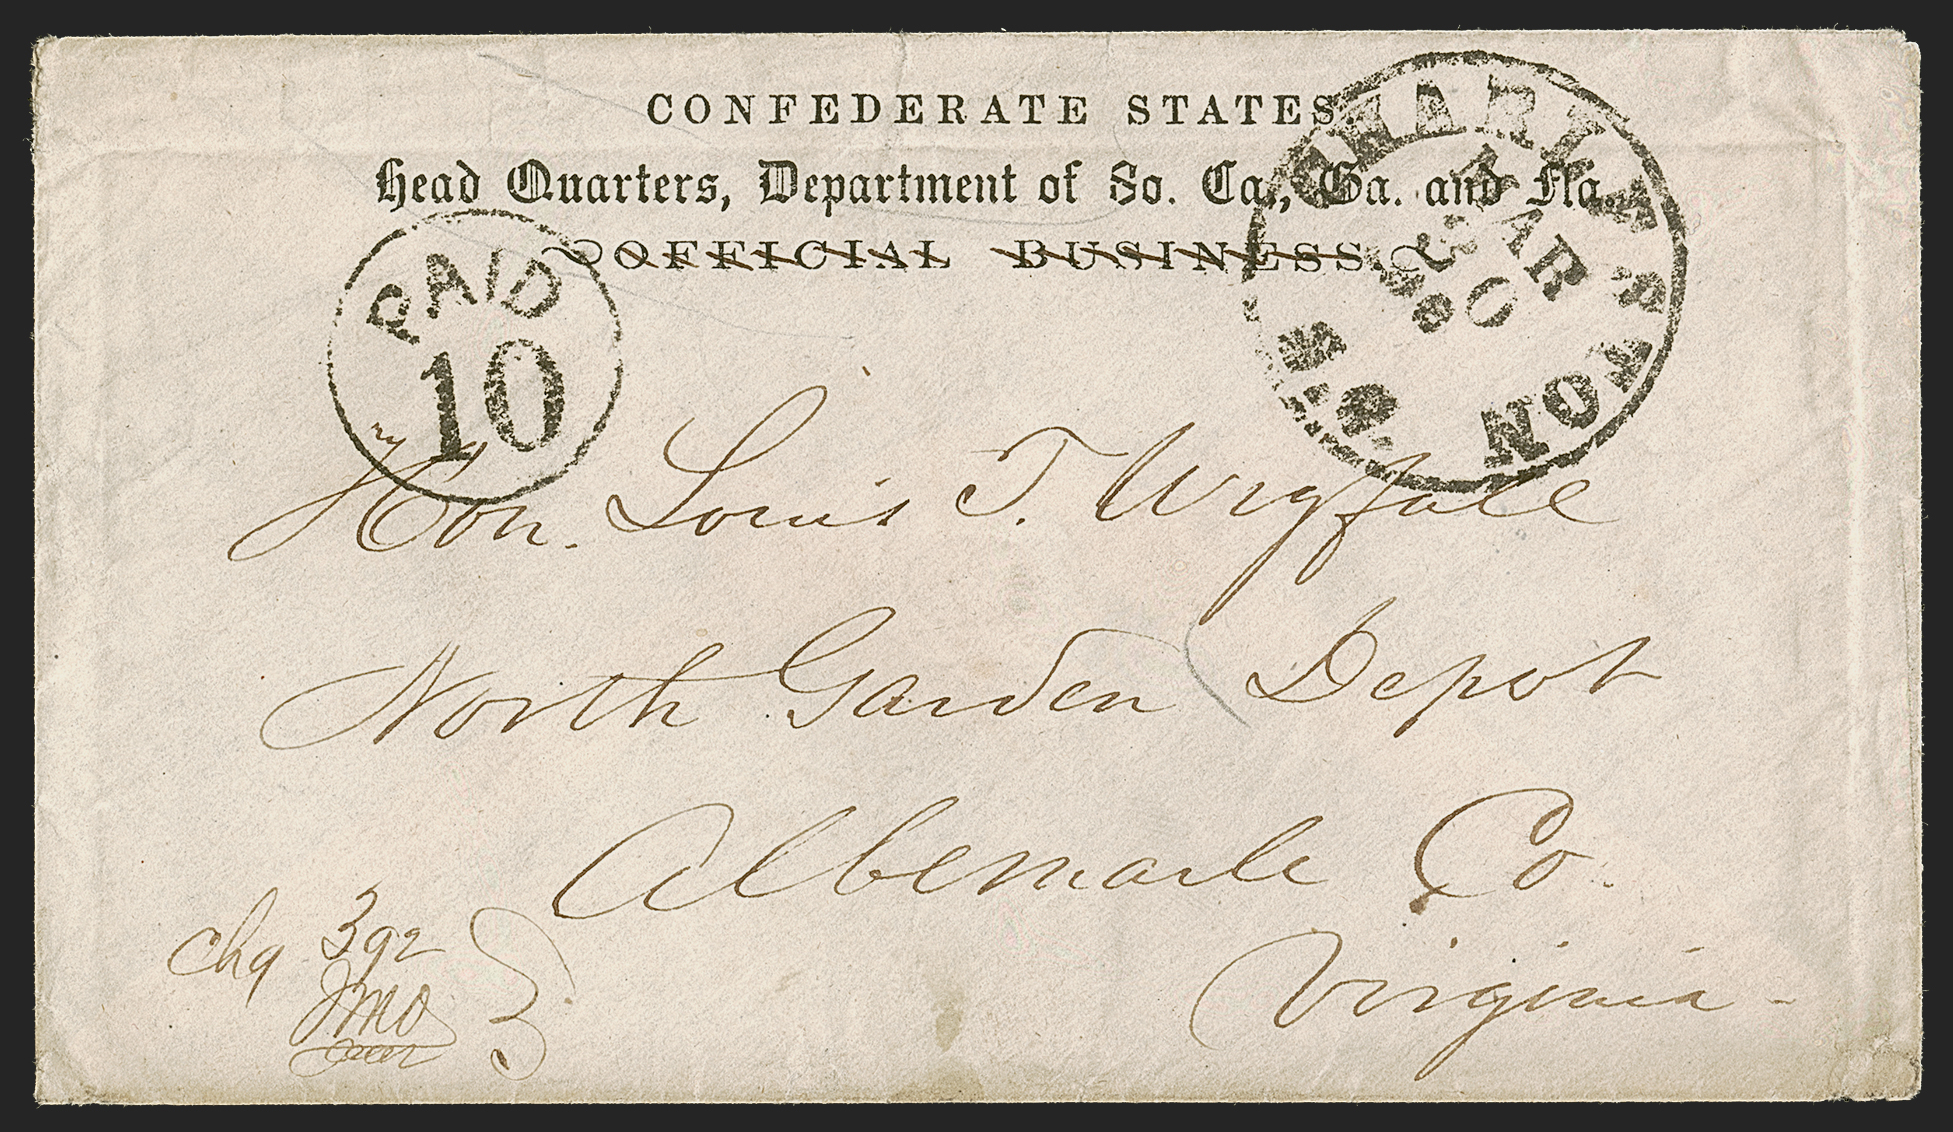 CONFEDERATE STATES.
Head Quarters, Department of So. Ca., Ga. and Fla.
OFFICIAL BUSINESS.
CHARLESTON
S.C.
MAR
PAID
10
Hon. Louis T. Wigfall
North Garden Depot
Albemarle Co.
Virginia
chg 392